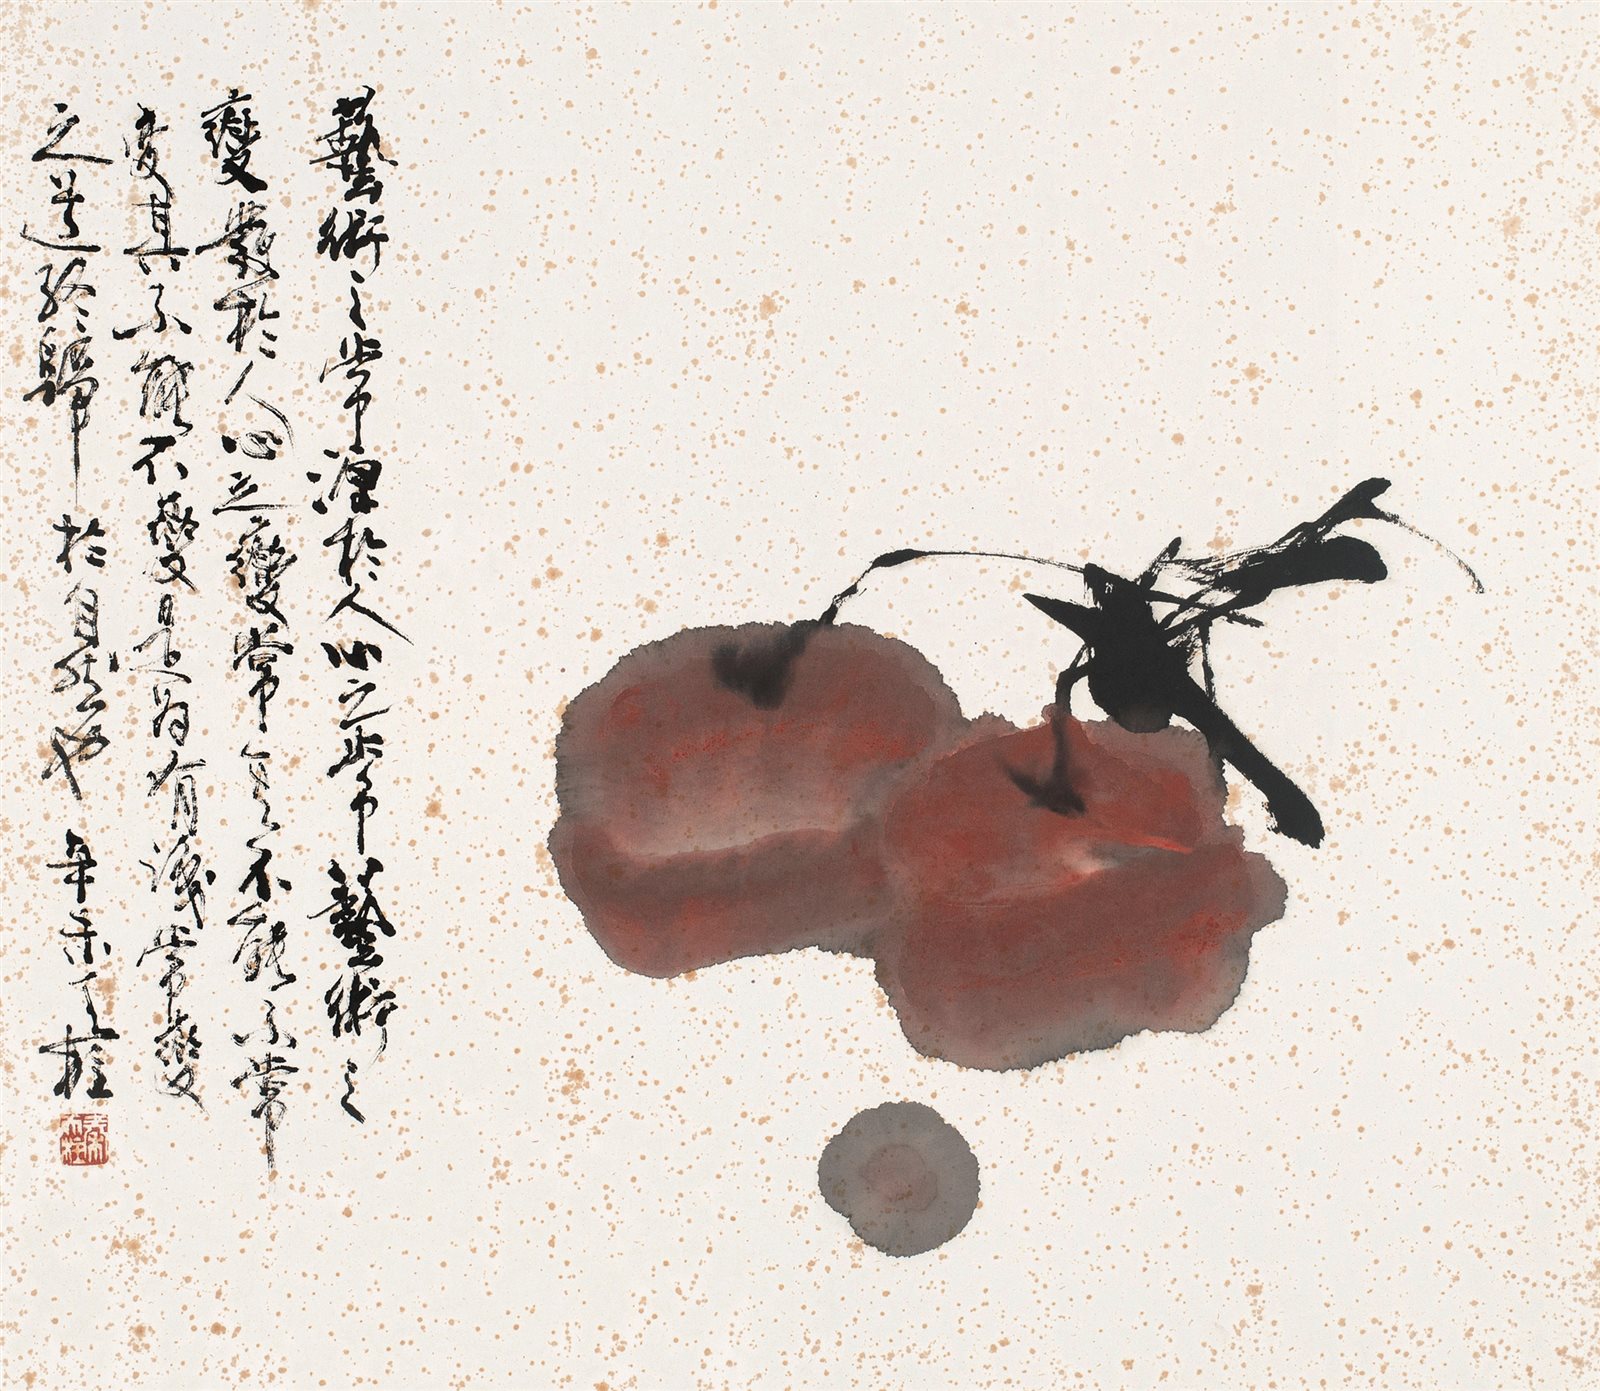 藝術之常源於人心之常藝術之
變發於人心之變常其不能不常
變其不能不變是為有識常變
之道終歸於自然也 辛未天柱